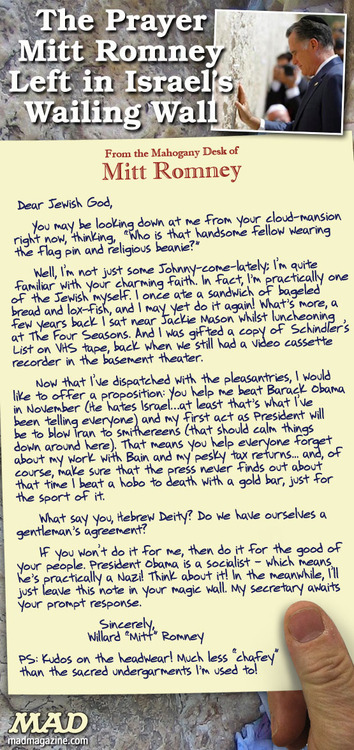 The Prayer
Mitt Romney
Left in Israel's
Wailing Wall
From the Mahogany Desk of
Mitt Romney
Dear Jewish God,
You may be looking down at me from your cloud-mansion
right now, thinking, "Who is that handsome fellow wearing
the flag pin and religious beanie?"
Well, I'm not just some Johnny-come-lately; I'm quite
familiar with your charming faith. In fact, I'm practically one
of the Jewish myself. I once ate a sandwich of bageled
bread and lox-fish, and I may yet do it again! What's more, a
few years back I sat near Jackie Mason whilst luncheoning
at The Four Seasons. And I was gifted a copy of Schindler's
List on VHS tape, back when we still had a video cassette
recorder in the basement theater.
Now that I've dispatched with the pleasantries, I would
like to offer a proposition: You help me beat Barack Obama
in November (He hates Israel...at least that's what I've
been telling everyone) and my first act as President will
be to blow Iran to smithereens (that should calm things
down around here). That means you help everyone forget
about my work with Bain and my pesky tax returns... and, of
course, make sure that the press never finds out about
that time I beat a hobo to death with a gold bar, just for
the sport of it.
What say you, Hebrew Deity? Do we have ourselves a
gentleman's agreement?
If you won't do it for me, then do it for the good of
your people. President Obama is a socialist – which means
he's practically a Nazi! Think about it! In the meanwhile, I'll
just leave this note in your magic wall. My secretary awaits
your prompt response.
Sincerely,
Willard "Mitt" Romney
PS: Kudos on the headwear! Much less "chafey"
than the sacred undergarments I'm used to!
MAD
madmagazine.com